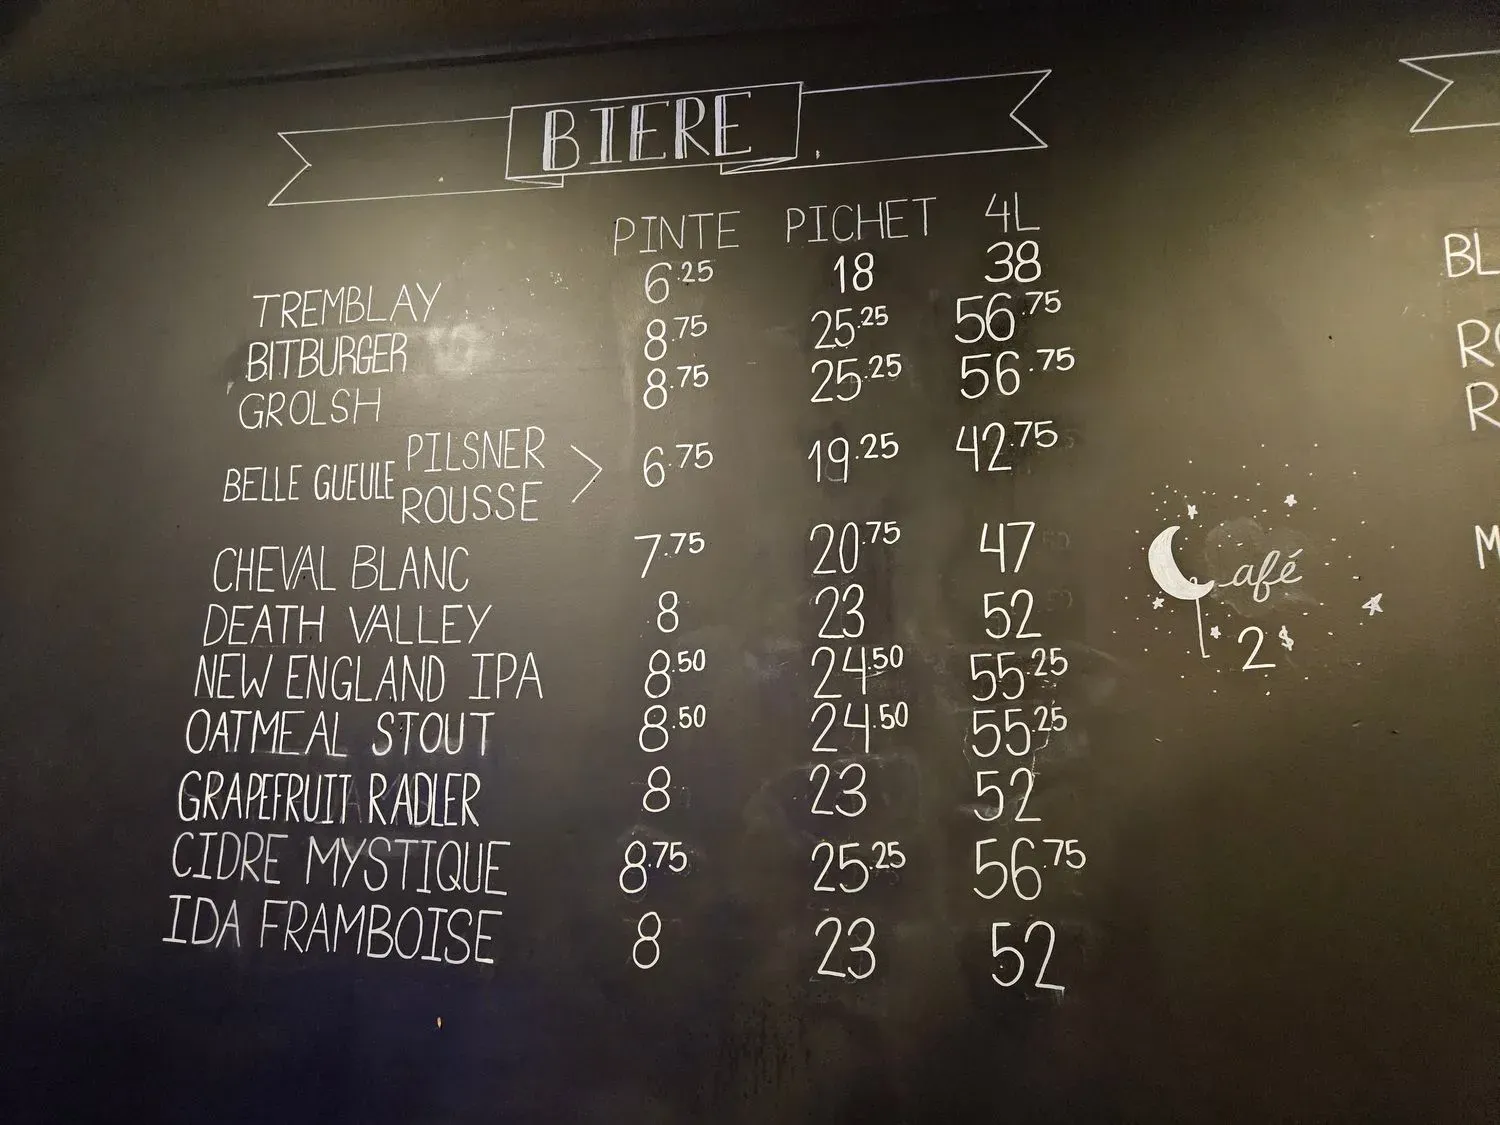 BIERE
PINTE PICHET 4L
TREMBLAY 6.25 18 38
BITBURGER 8.75 25.25 56.75
GROLSH 8.75 25.25 56.75
BELLE GUEULE PILSNER ROUSSE > 6.75 19.25 42.75
CHEVAL BLANC 7.75 20.75 47
DEATH VALLEY 8 23 52
NEW ENGLAND IPA 8.50 24.50 55.25
OATMEAL STOUT 8.50 24.50 55.25
GRAPEFRUIT RADLER 8 23 52
CIDRE MYSTIQUE 8.75 25.25 56.75
IDA FRAMBOISE 8 23 52
Café
2$
BL
R
M